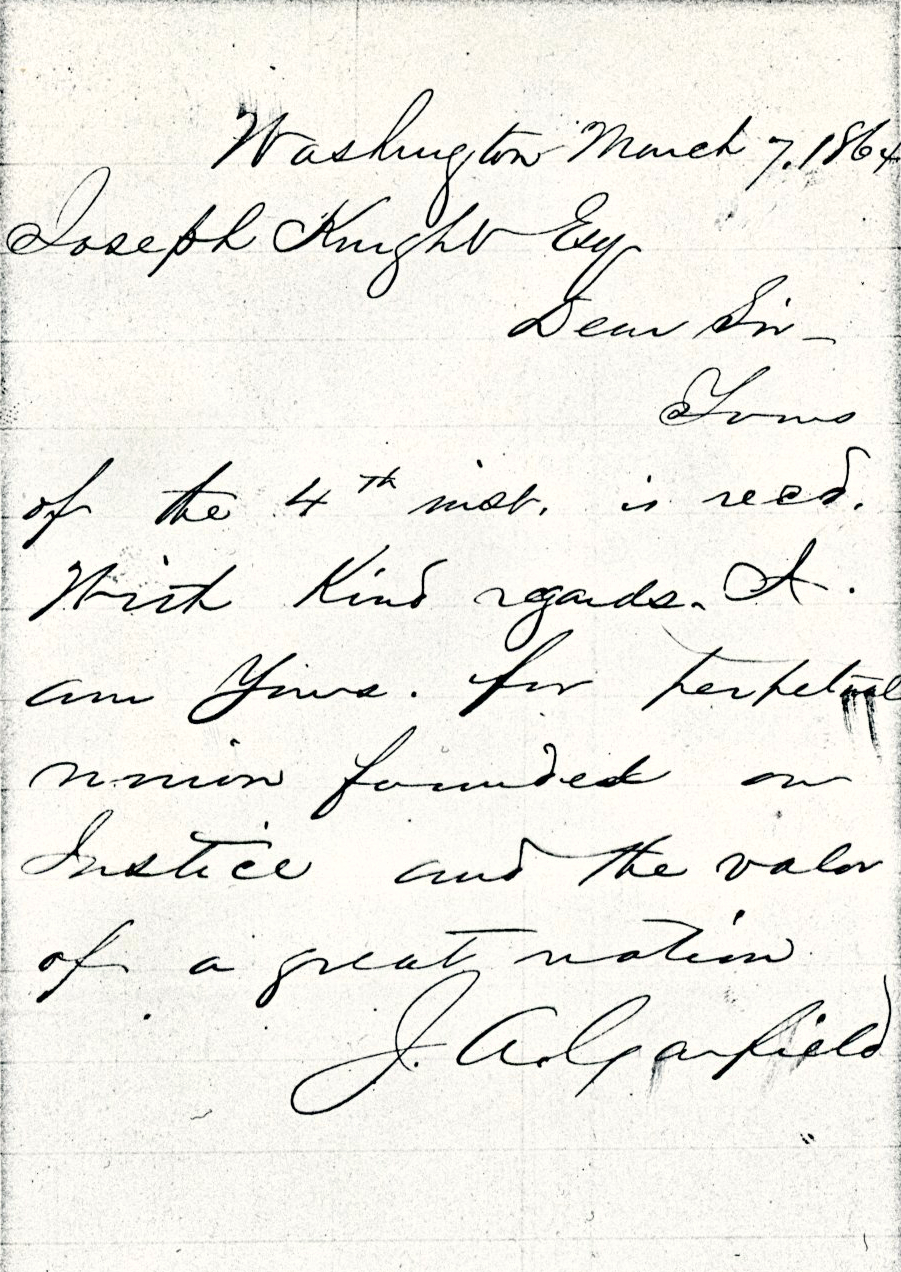 Washington March 7, 1864
Joseph Knight Esq
Dear Sir –
Yours
of the 4th inst. is recd.
With Kind regards. I.
am Yours. for perpetual
union founded on
Justice and the valor
of a great nation
J. A. Garfield